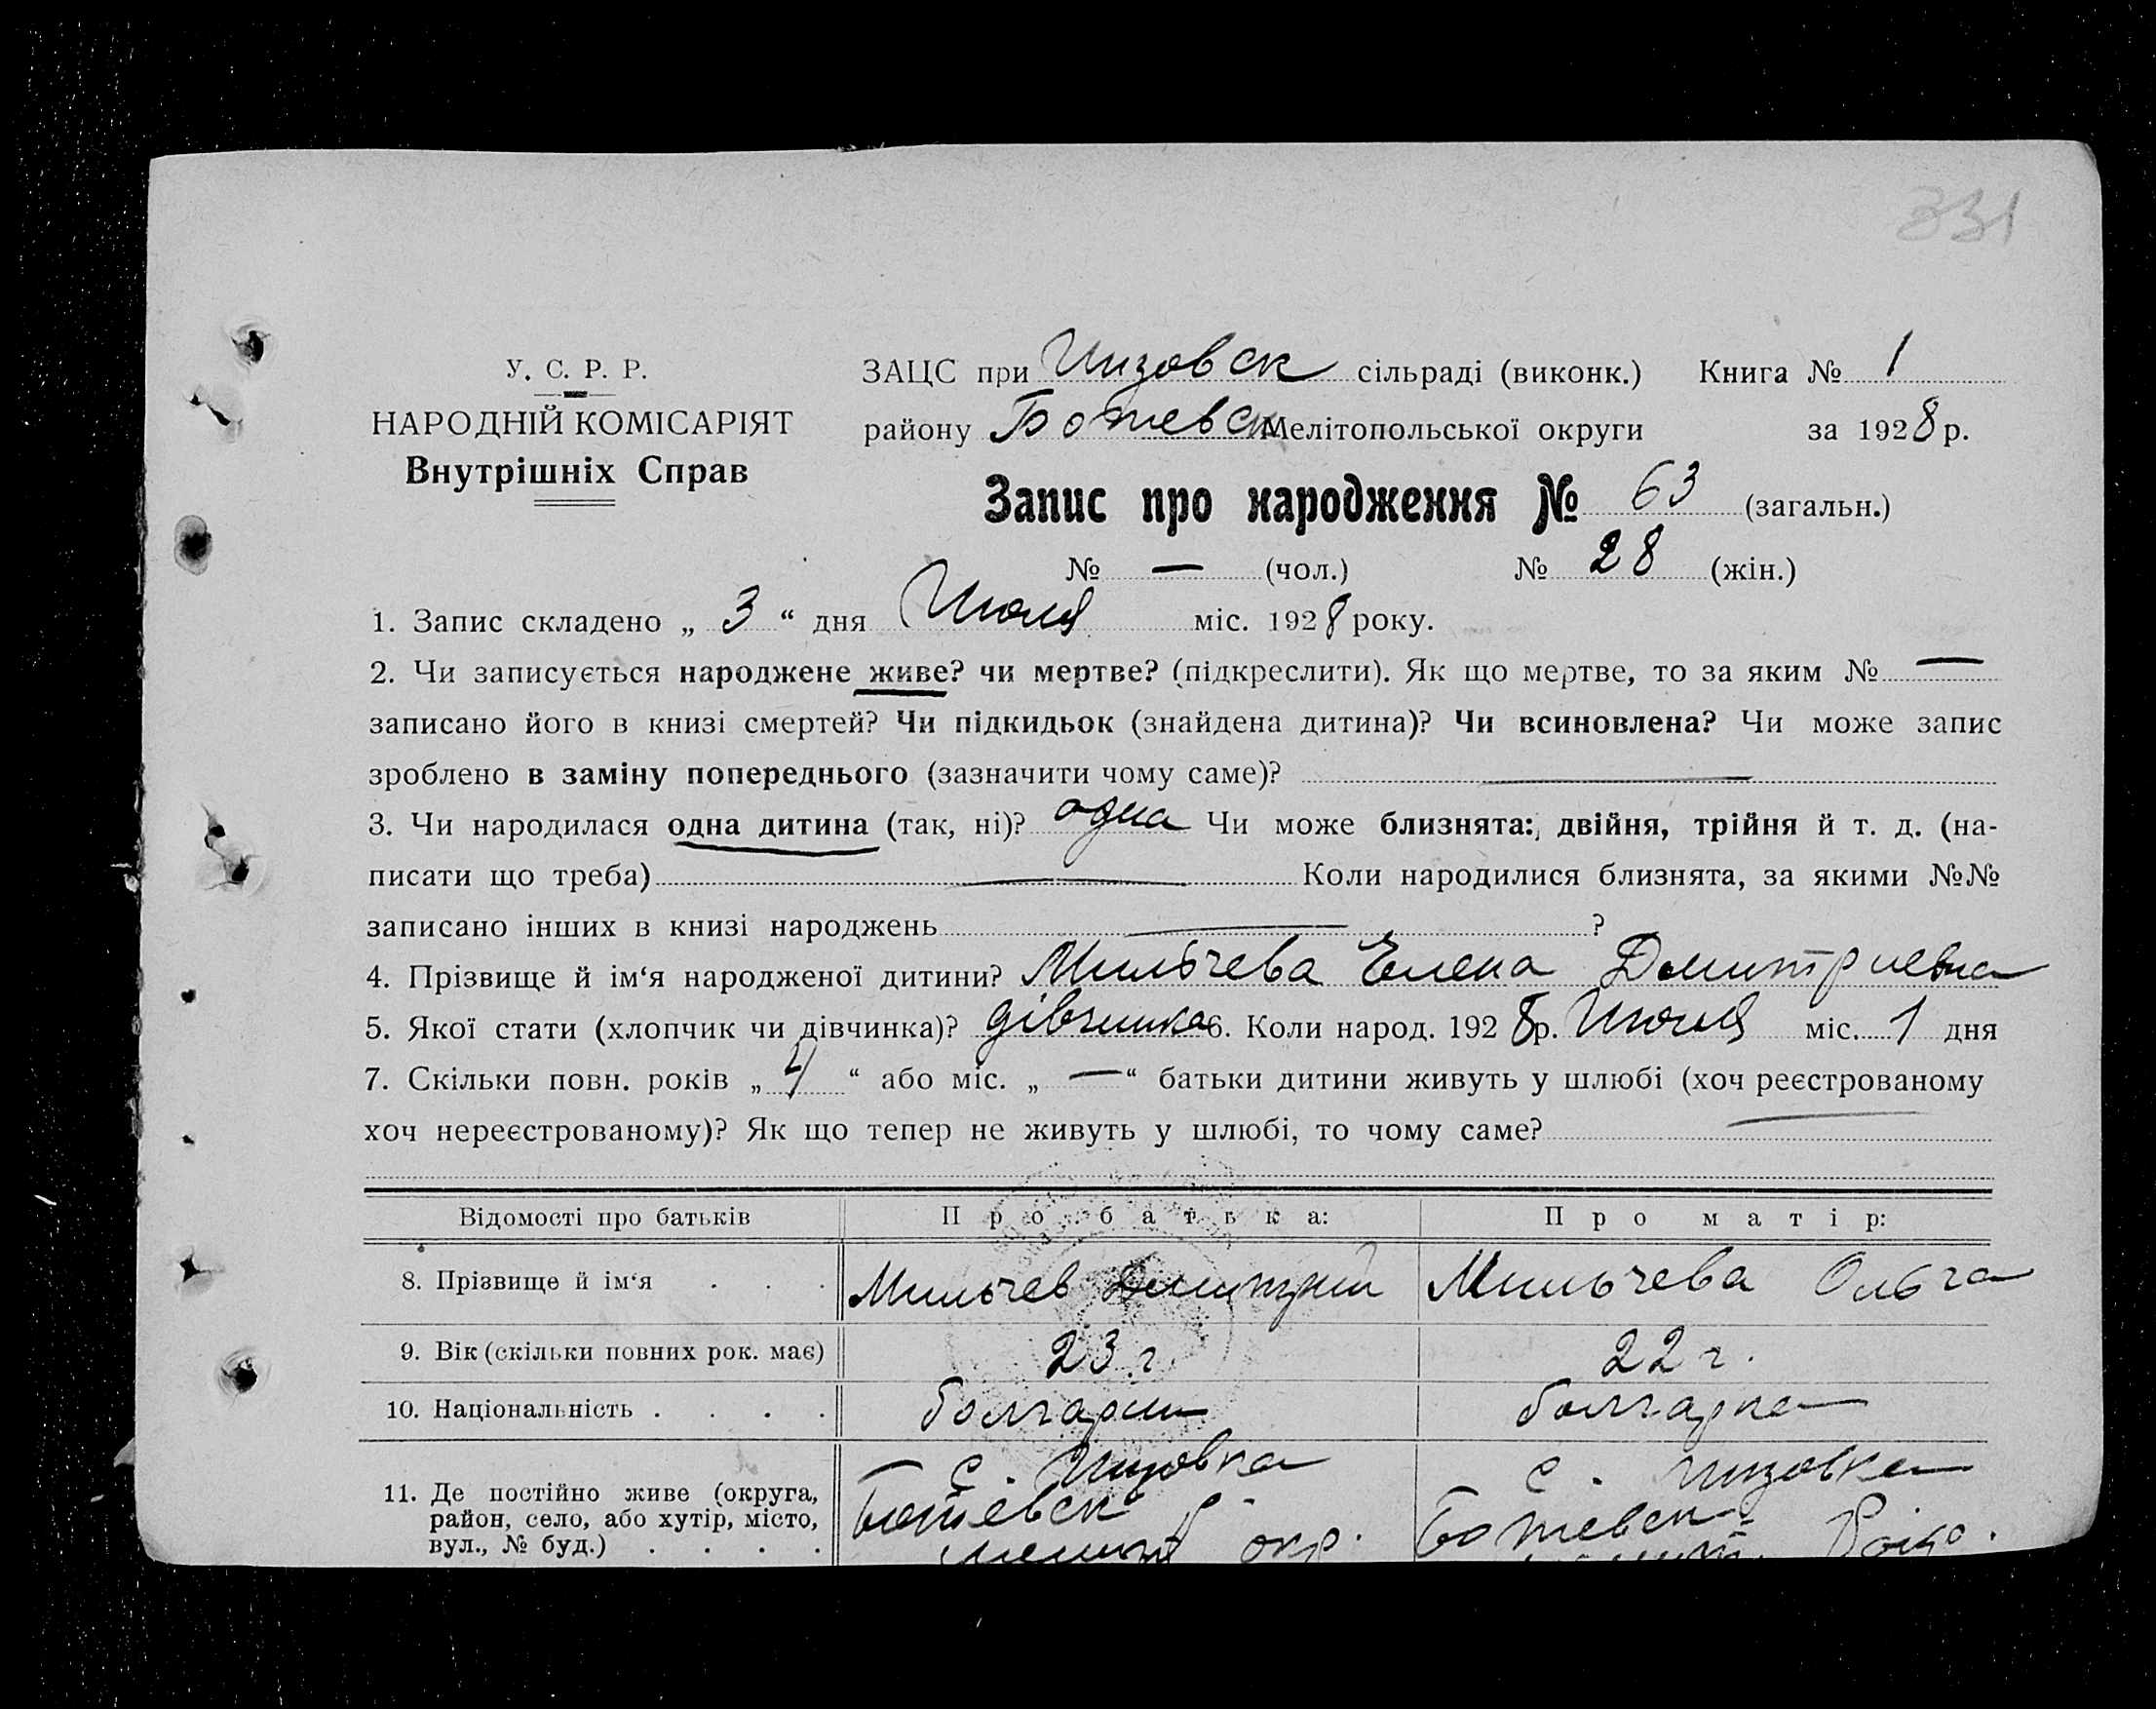 331
У. С. Р. Р.
НАРОДНІЙ КОМІСАРІЯТ
Внутрішніх Справ
ЗАЦС при Инзовск сільраді (виконк.) Книга № 1
району Ботевск Мелітопольської округи за 1928 р.
Запис про народження № 63 (загальн.)
№ — (чол.) № 28 (жін.)
1. Запис складено „ 3 “ дня Июля міс. 1928 року.
2. Чи записується народжене живе? чи мертве? (підкреслити). Як що мертве, то за яким № —
записано його в книзі смертей? Чи підкидьок (знайдена дитина)? Чи всиновлена? Чи може запис
зроблено в заміну попереднього (зазначити чому саме)? —
3. Чи народилася одна дитина (так, ні)? одна Чи може близнята: двійня, трійня й т. д. (на-
писати що треба) — Коли народилися близнята, за якими №№
записано інших в книзі народжень — ?
4. Прізвище й ім‘я народженої дитини? Мильчева Елена Димитриевна
5. Якої стати (хлопчик чи дівчинка)? дівчинка 6. Коли народ. 1928 р. Июля міс. 1 дня
7. Скільки повн. років „ 4 “ або міс. „ — “ батьки дитини живуть у шлюбі (хоч реєстрованому
хоч нереєстрованому)? Як що тепер не живуть у шлюбі, то чому саме? —
Відомості про батьків Про батька: Про матір:
8. Прізвище й ім‘я . . . Мильчев Димитрий Мильчева Ольга
9. Вік (скільки повних рок. має) 23 г. 22 г.
10. Національність . . . . болгарин болгарка
11. Де постійно живе (округа, с. Инзовка с. Инзовка
район, село, або хутір, місто, Ботевск р. Ботевск
вул., № буд.) . . . . мелит окр. мелит.